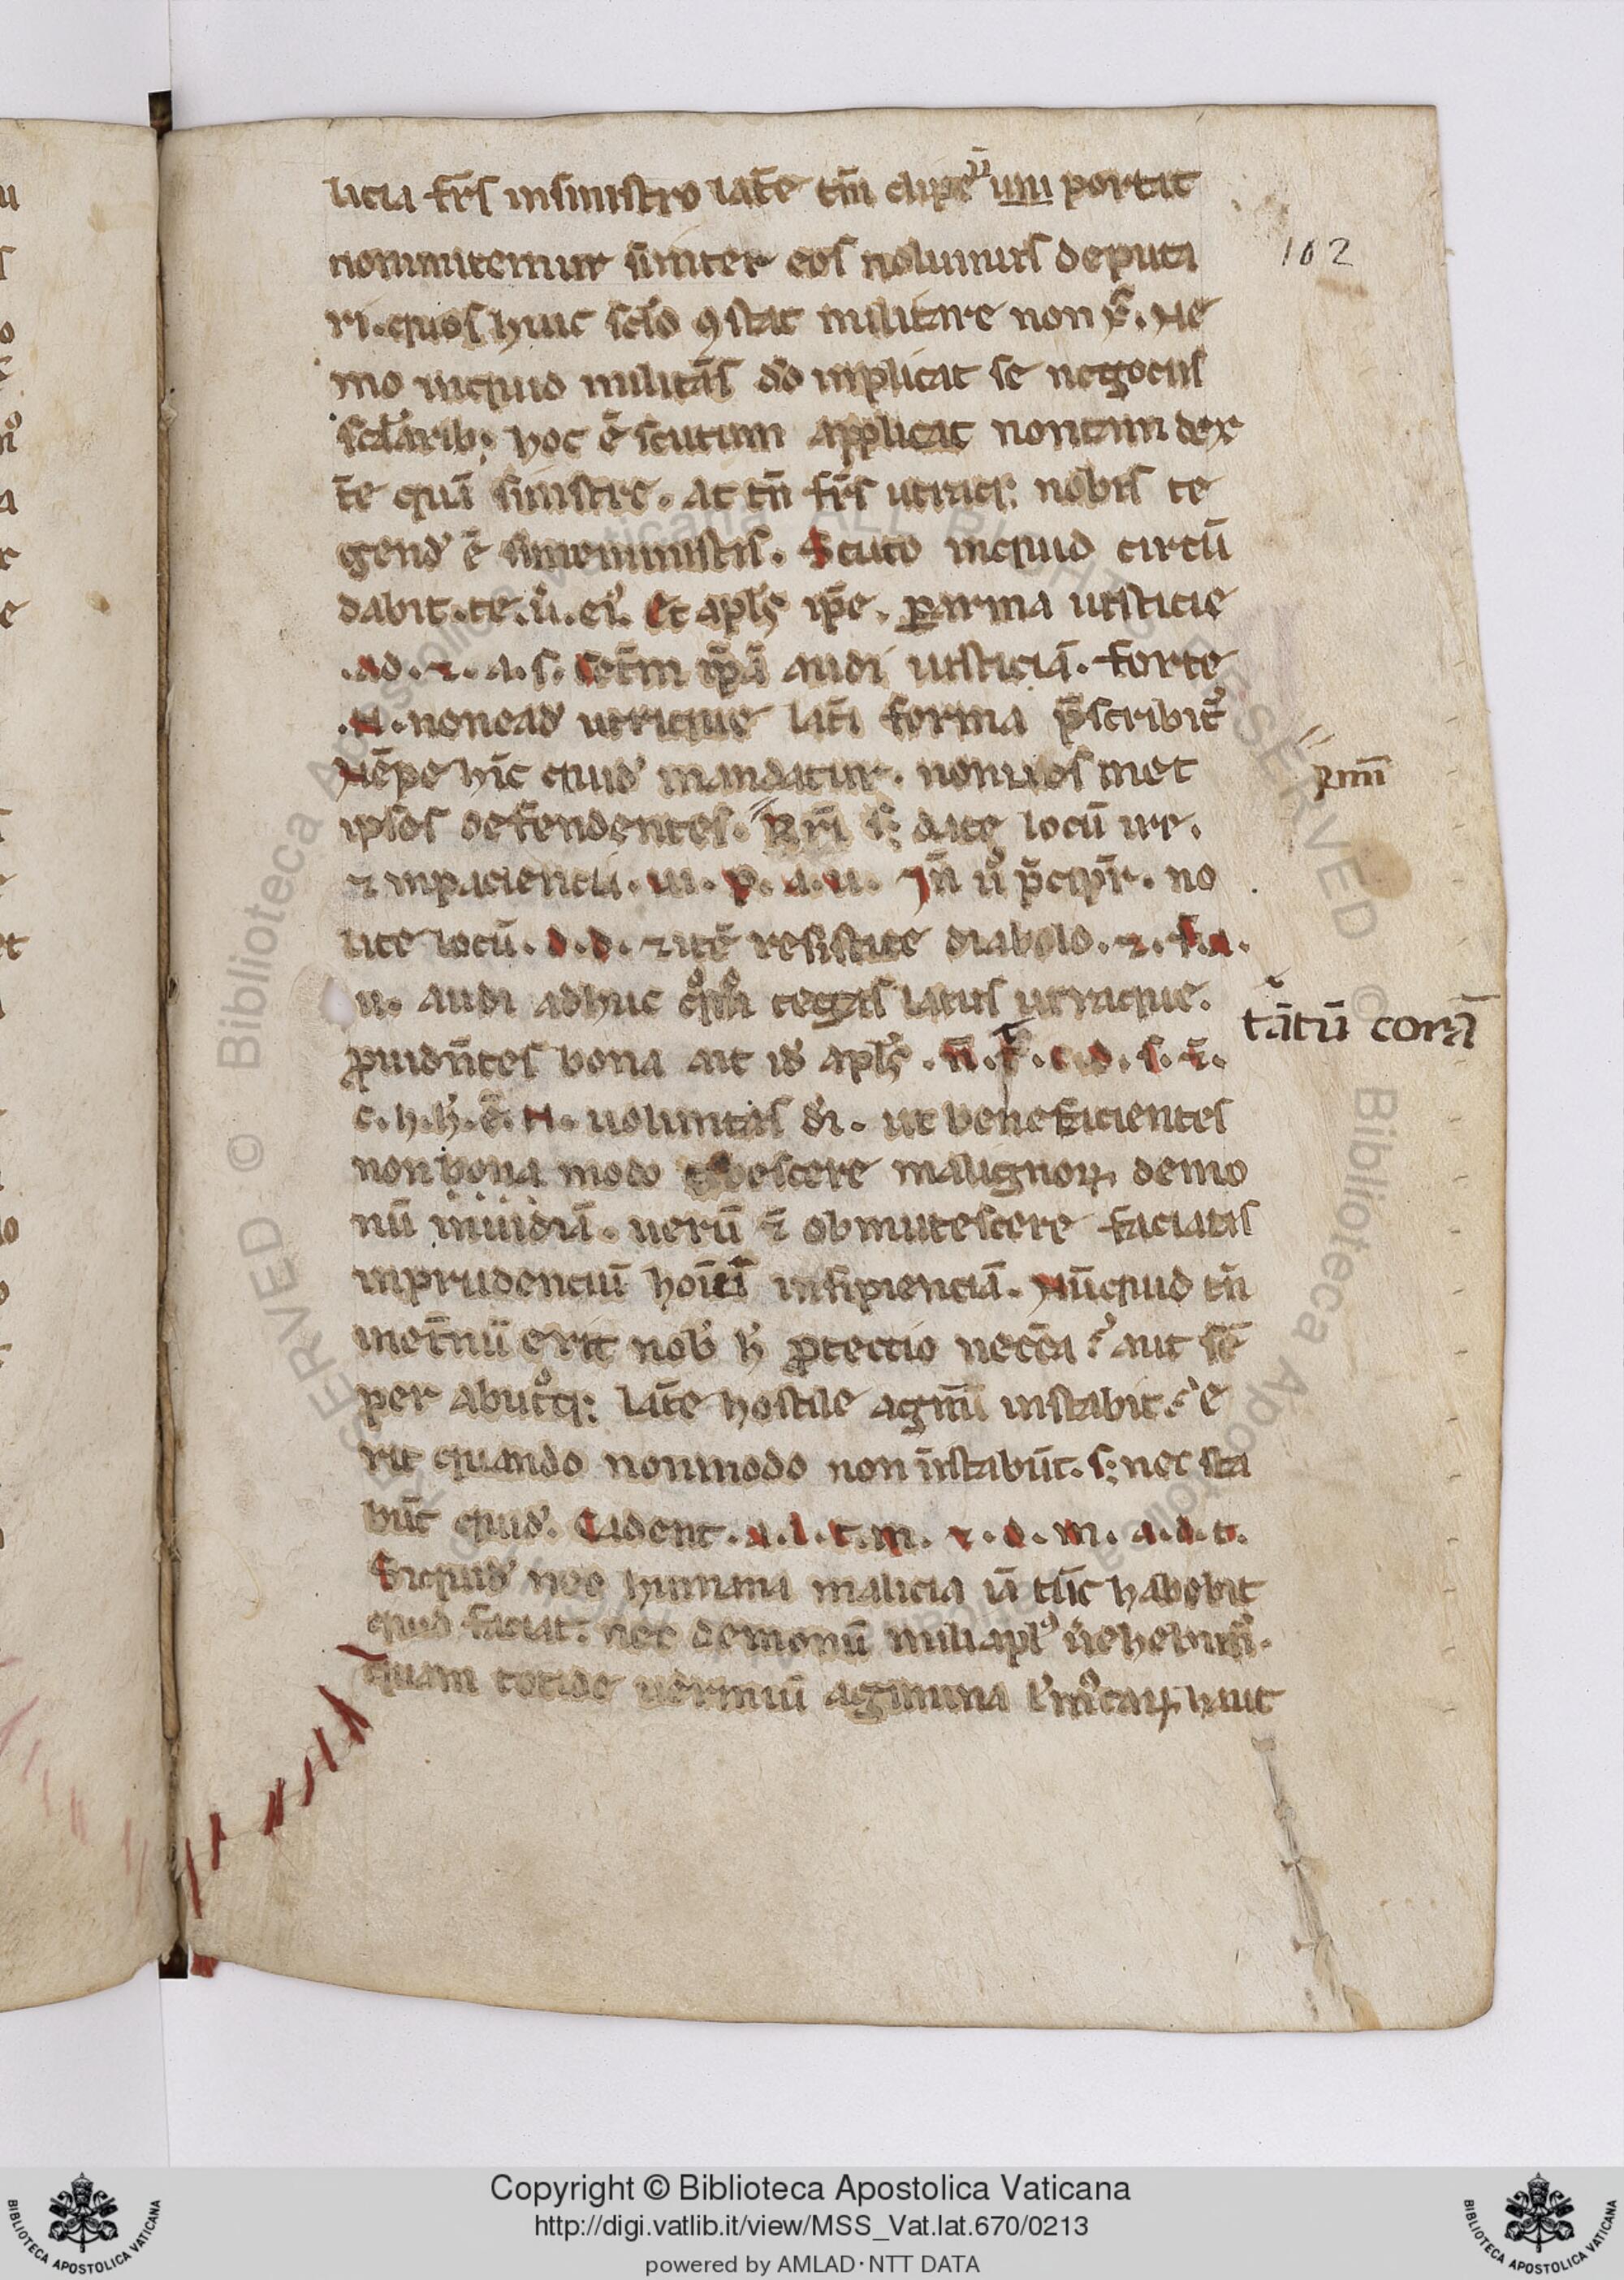 licia fr̄s in sinistro lat̄e tm̄ clipeū uni portat
non imitemur si inter eos nolumus deputa
ri. quos huic scl̄o ꝯstat militare non x̄. Ne
mo inquid militās dō inplicat se negociis
scl̄arib; hoc ē scutum applicat non tam dex
t̄e quā sinistre. at tn̄ fr̄s utrūq; nobis te
gend' ē si meministis. Scuto inquid circū
dabit. te. ū. ei'. Et apl's ip̄e. ꝑ arma iusticie
.ad. ⁊. a. s. Set̄m ip̄ā audi iusticiā. forte
.N. non ead' utrique lat̄i forma p̄scribit'
Nēpe hīc quid' mandatur. non uos met
ipsos defendentes. kr̄i s; date locū ire.
⁊ inpaciencia. ui. p. a. u. In̄ ū p̄cipit̄. no
lite locū. d. d. ⁊ itē resistite diabolo. ⁊. f. a.
u. audi adhuc tegas latus utrūque.
ꝓuidn̄tes bona ait id' apl's. n̄. t̄. c. d. s. ⁊.
c. h. h'. ē. N. uoluntas di'. ut benefacientes
non bona modo bescere malignoꝝ demo
nū inuidiā. uerū ⁊ obmutescere faciatis
inprudenciū hoīū insipienciā. Nūquid tn̄
inet̄nū erit nob' h' ꝓtectio necc̄a? aut sē
per ab utq; lat̄e hostile agm̄ instabit? e
rit quando non modo non īstabūt. s; nec sta
būt quid'. Cadent. a. l. t. m. ⁊. d. m. a. d. t.
Siquid' nec humana malicia ū tūc habebit
quid faciat. nec demonū mili apl' ū
quam totide uermiū agmina haut
102
ꝑmī
tātū corā
Copyright © Biblioteca Apostolica Vaticana
http://digi.vatlib.it/view/MSS_Vat.lat.670/0213
powered by AMLAD·NTT DATA